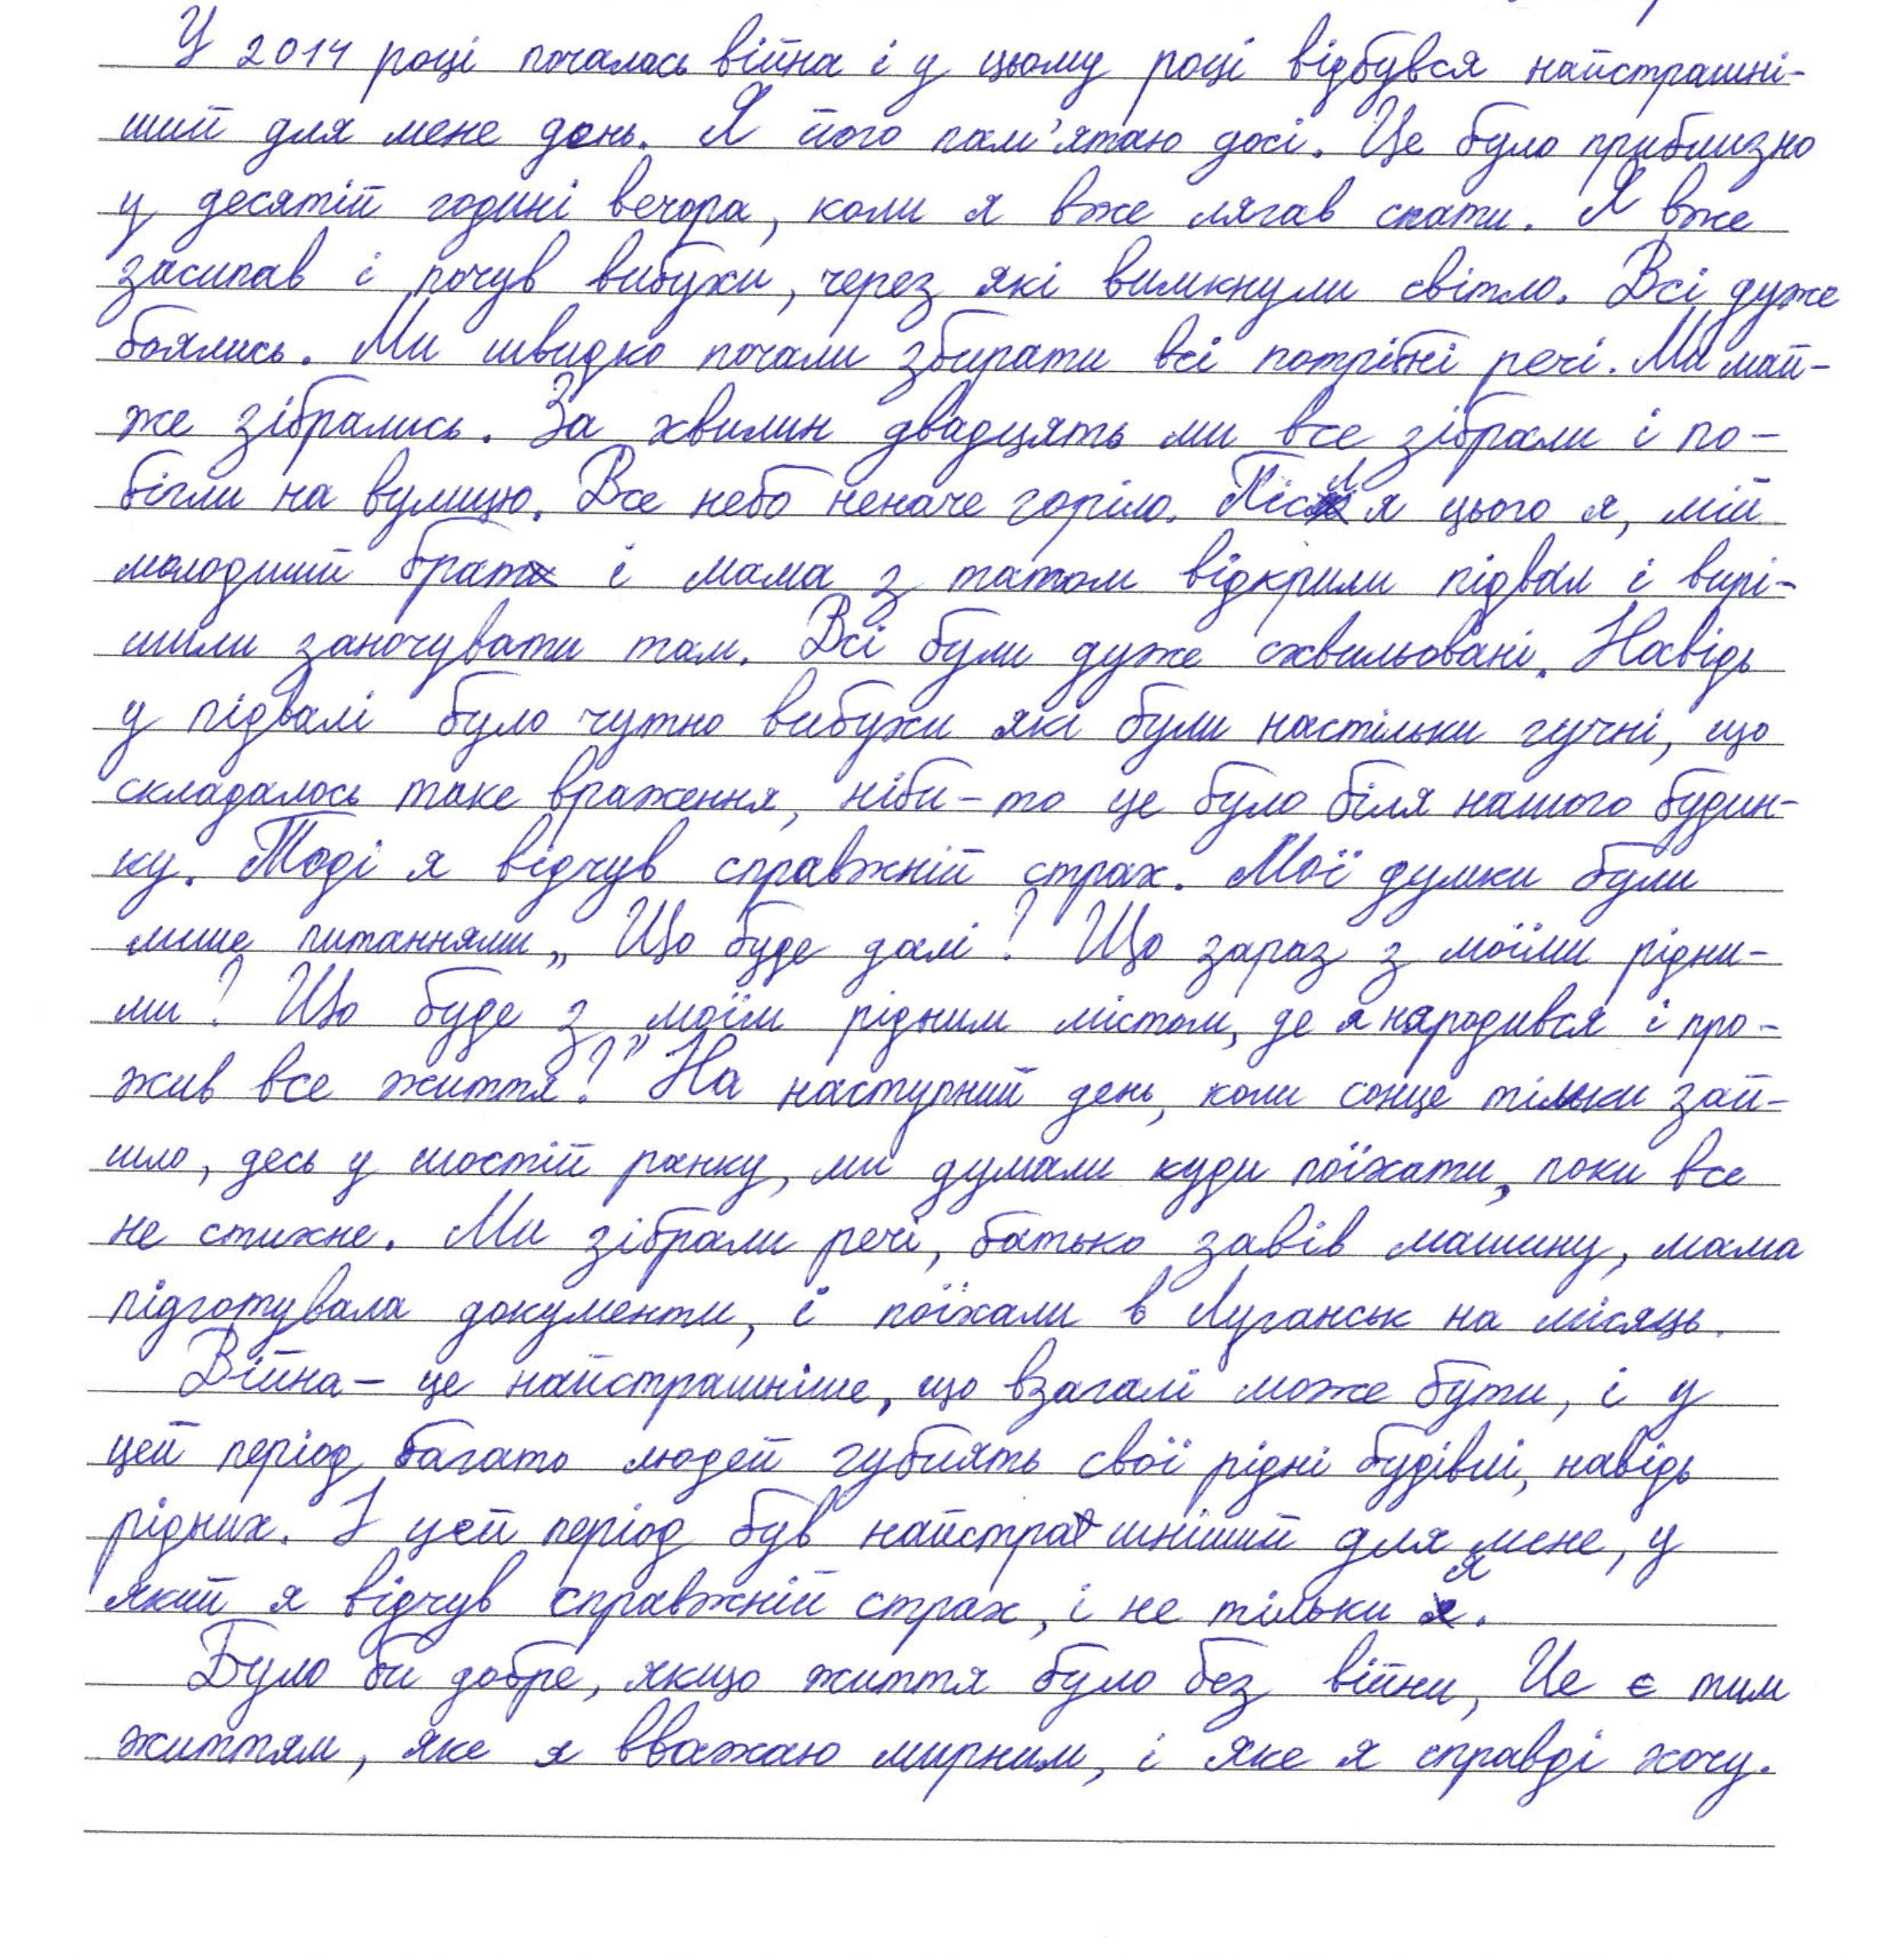 У 2014 році почалась війна і у цьому році відбувся найстрашні-
ший для мене день. Я його пам'ятаю досі. Це було приблизно
у десятій годині вечора, коли я вже лягав спати. Я вже
засипав і почув вибухи, через які вимкнули світло. Всі дуже
боялись. Ми швидко почали збирати всі потрібні речі. Ми май-
же зібрались. За хвилин двадцять ми все зібрали і по-
бігли на вулицю. Все небо неначе горіло. Після цього я, мій
молодший брат і мама з татом відкрили підвал і вирі-
шили заночувати там. Всі були дуже схвильовані. Навідь
у підвалі було чутно вибухи які були настільки гучні, що
складалось таке враження, ніби-то це було біля нашого будин-
ку. Тоді я відчув справжній страх. Мої думки були
лише питаннями „Що буде далі? Що зараз з моїми рідни-
ми? Що буде з моїм рідним містом, де я народився і про-
жив все життя?" На наступний день, коли сонце тільки зай-
шло, десь у шостій ранку, ми думали куди поїхати, поки все
не стихне. Ми зібрали речі, батько завів машину, мама
підготувала документи, і поїхали в Луганськ на місяць.
Війна - це найстрашніше, що взагалі може бути, і у
цей період багато людей гублять свої рідні будівлі, навідь
рідних. І цей період був найстрашніший для мене, у
який я відчув справжній страх, і не тільки я.
Було би добре, якщо життя було без війни, Це є тим
життям, яке я вважаю мирним, і яке я справді хочу.